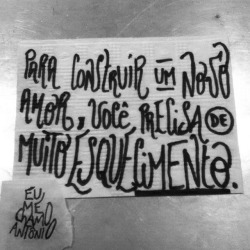 PARA CONSTRUIR UM NOVO
AMOR, VOCÊ PRECISA DE
MUITO ESQUECIMENTO.
EU
ME
CHAMO
ANTÔNIO